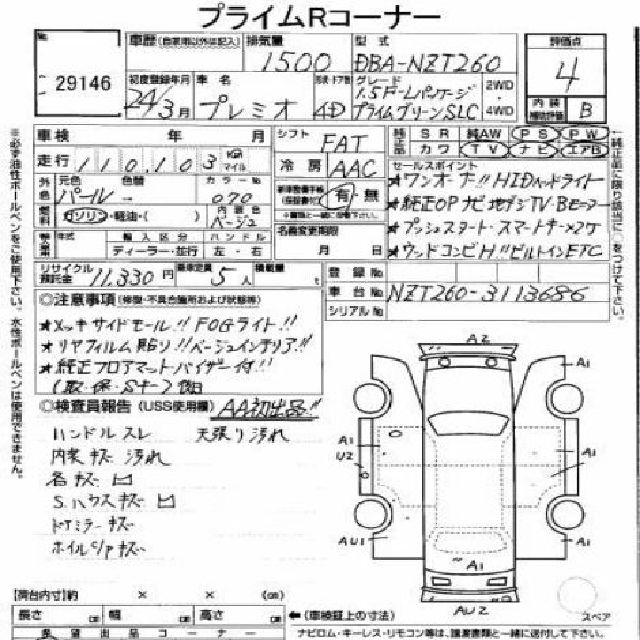 プライムRコーナー
No. 29146
車歴 (自家用以外は記入)
排気量 1500
型式 DBA-NZT260
評価点 4
初度登録年月 24/3月
車名 プレミオ
形状・ドア数 4D
グレード 1.5F-Lパッケージ プライムグリーンSLC
2WD
4WD
内装補助評価 B
車検 年 月
シフト FAT
純正 SR 純AW PS PW
革 カワ TV ナビ エアB
走行 110,103 Km マイル
冷房 AAC
セールスポイント
外色 元色 パール 色替
カラーNo. 070
内装色 ベージュ
ガソリン・軽油・( )
新車整備手帳(保証書) 有・無
※書類と一緒に後日送付
★ワンオーナー!! HIDヘッドライト
★純正OP ナビ地デジTV・Bモニター
★プッシュスタート・スマートキー×2ケ
★ウッドコンビH!! ビルトインETC
輸入車 年式 輸入区分 ハンドル
ディーラー・並行 左・右
名義変更期限 月 日
リサイクル預託金 11,330円
乗車定員 5人
積載量
登録No.
車台No. NZT260-3113686
シリアルNo.
◎注意事項 (修復・不具合箇所および状態等)
★メッキサイドモール!! FOGライト!!
★リヤフィルム貼り!! ベージュインテリア!!
★純正フロアマット・バイザー付!!
(取・保・Sキー)
◎検査員報告 (USS使用欄) AA初出品!!
ハンドルスレ 天張り汚れ
内装キズ 汚れ
各キズ 凹
S.ハウスキズ 凹
ドアミラーキズ
ホイルC/Pキズ
A2
A1
A1
A1
U2
A1
AU1
A1
AU2
A1
スペア
【荷台内寸】約 × × (cm)
長さ cm 幅 cm 高さ cm
←(車検証上の寸法)
ナビロム・キーレス・リモコン等は、譲渡書類と一緒に送付して下さい。
※必ず油性ボールペンをご使用下さい。水性ボールペンは使用できません。
←純正品に限り該当に○をつけて下さい。